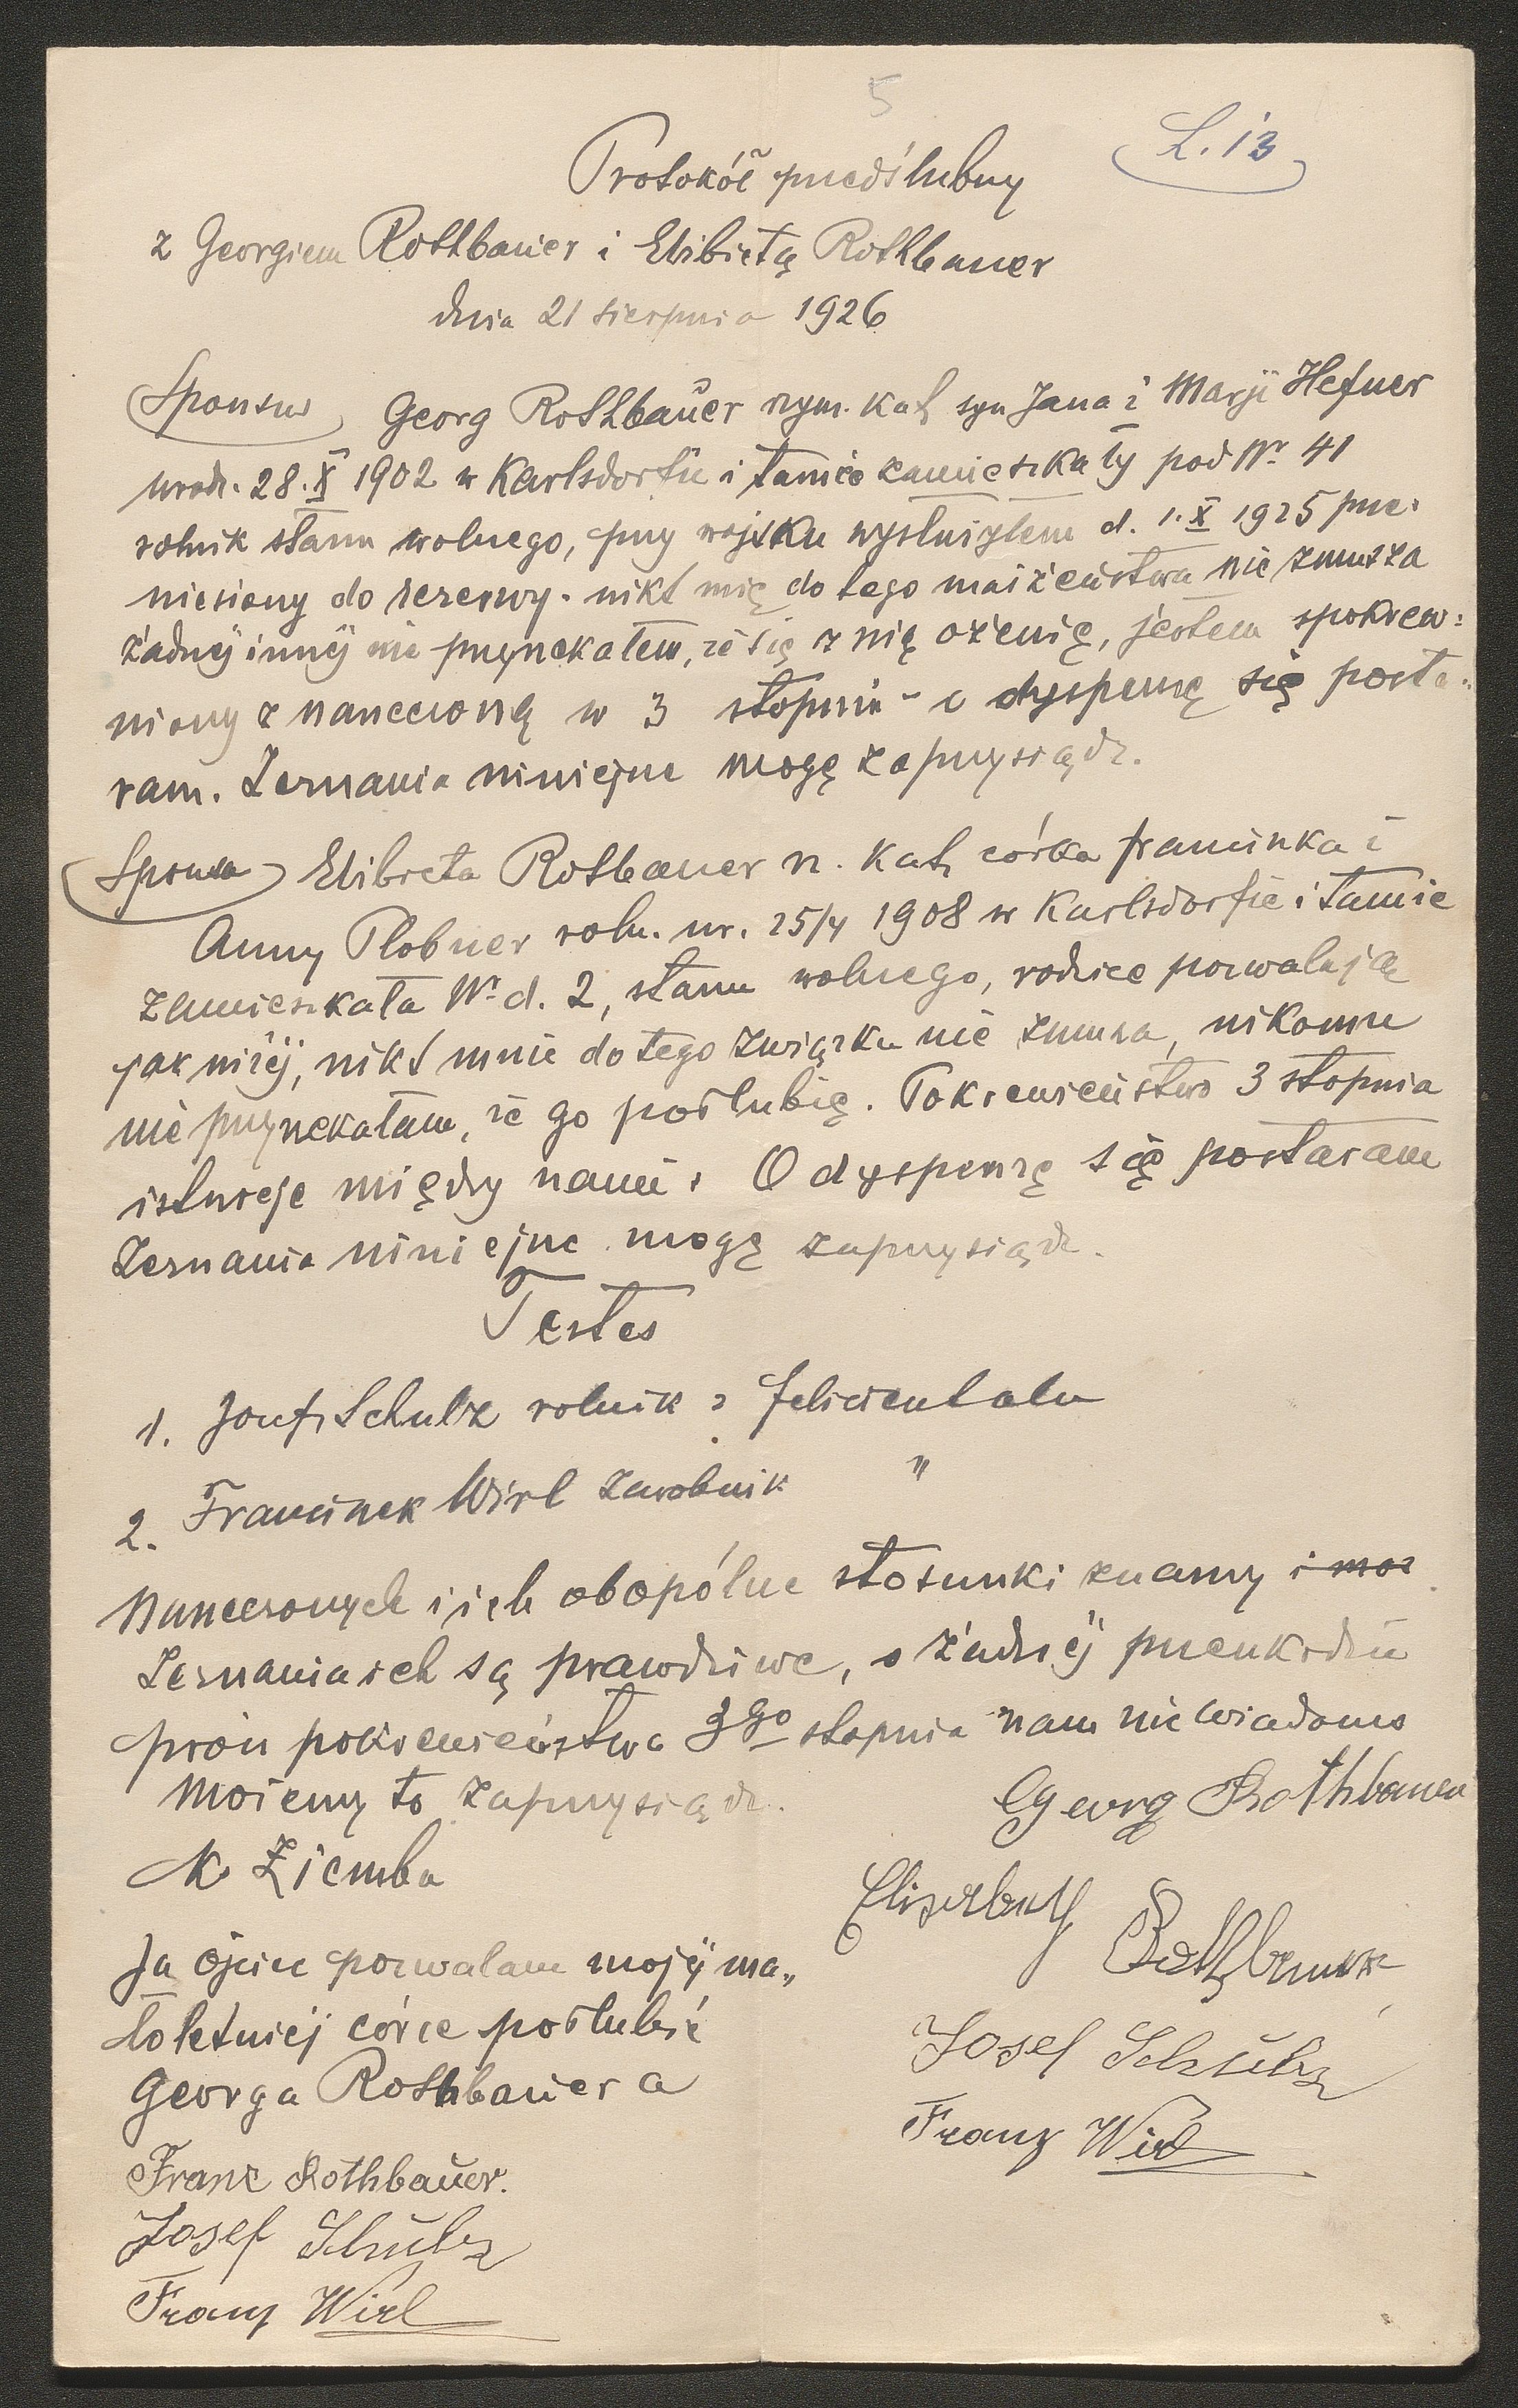 5
L. 13
Protokół przedślubny
z Georgiem Rothbauer i Elżbietą Rothbauer
dnia 21 sierpnia 1926
Sponsus Georg Rothbauer rzym. kat. syn Jana i Marji Hefner
urodz. 28. X 1902 w Karlsdorfie i tamże zamieszkały pod Nr 41
rolnik stanu wolnego, przy wojsku wysłużyłem d. 1. X 1925 prze-
niesiony do rezerwy. nikt mię do tego małżeństwa nie zmusza
żadnej innej nie przyrzekałem, że się z nią ożenię, jestem spokrew=
niony z narzeczoną w 3 stopniu - o dyspensę się posta-
ram. Zeznania niniejsze mogę zaprzysiądz.
Sponsa Elżbieta Rothbauer rz. kat. córka Franciszka i
Anny Plobner roln. ur. 25/4 1908 w Karlsdorfie i tamże
zamieszkała Nr d. 2, stanu wolnego, rodzice pozwalają
jak niżej, nikt mnie do tego związku nie zmusza, nikomu
nie przyrzekałam, że go poślubię. Pokrewieństwo 3 stopnia
istnieje między nami. O dyspensę się postaram
Zeznania niniejsze mogę zaprzysiądz.
Testes
1. Josef Schulz rolnik z Felicientalu
2. Franciszek Wirl zarobnik "
Narzeczonych i ich obopólne stosunki znamy i moż
Zeznania ich są prawdziwe, o żadnej przeszkodzie
prócz pokrewieństwa 3go stopnia nam nie wiadomo
Możemy to zaprzysiądz.
Georg Rothbauer
X Ziemba
Elisabeth Rothbauer
Ja ojciec pozwalam mojej ma„
łoletniej córce poślubić
Georga Rothbauera
Josef Schulz
Franz Wirl
Franz Rothbauer.
Josef Schulz
Franz Wirl